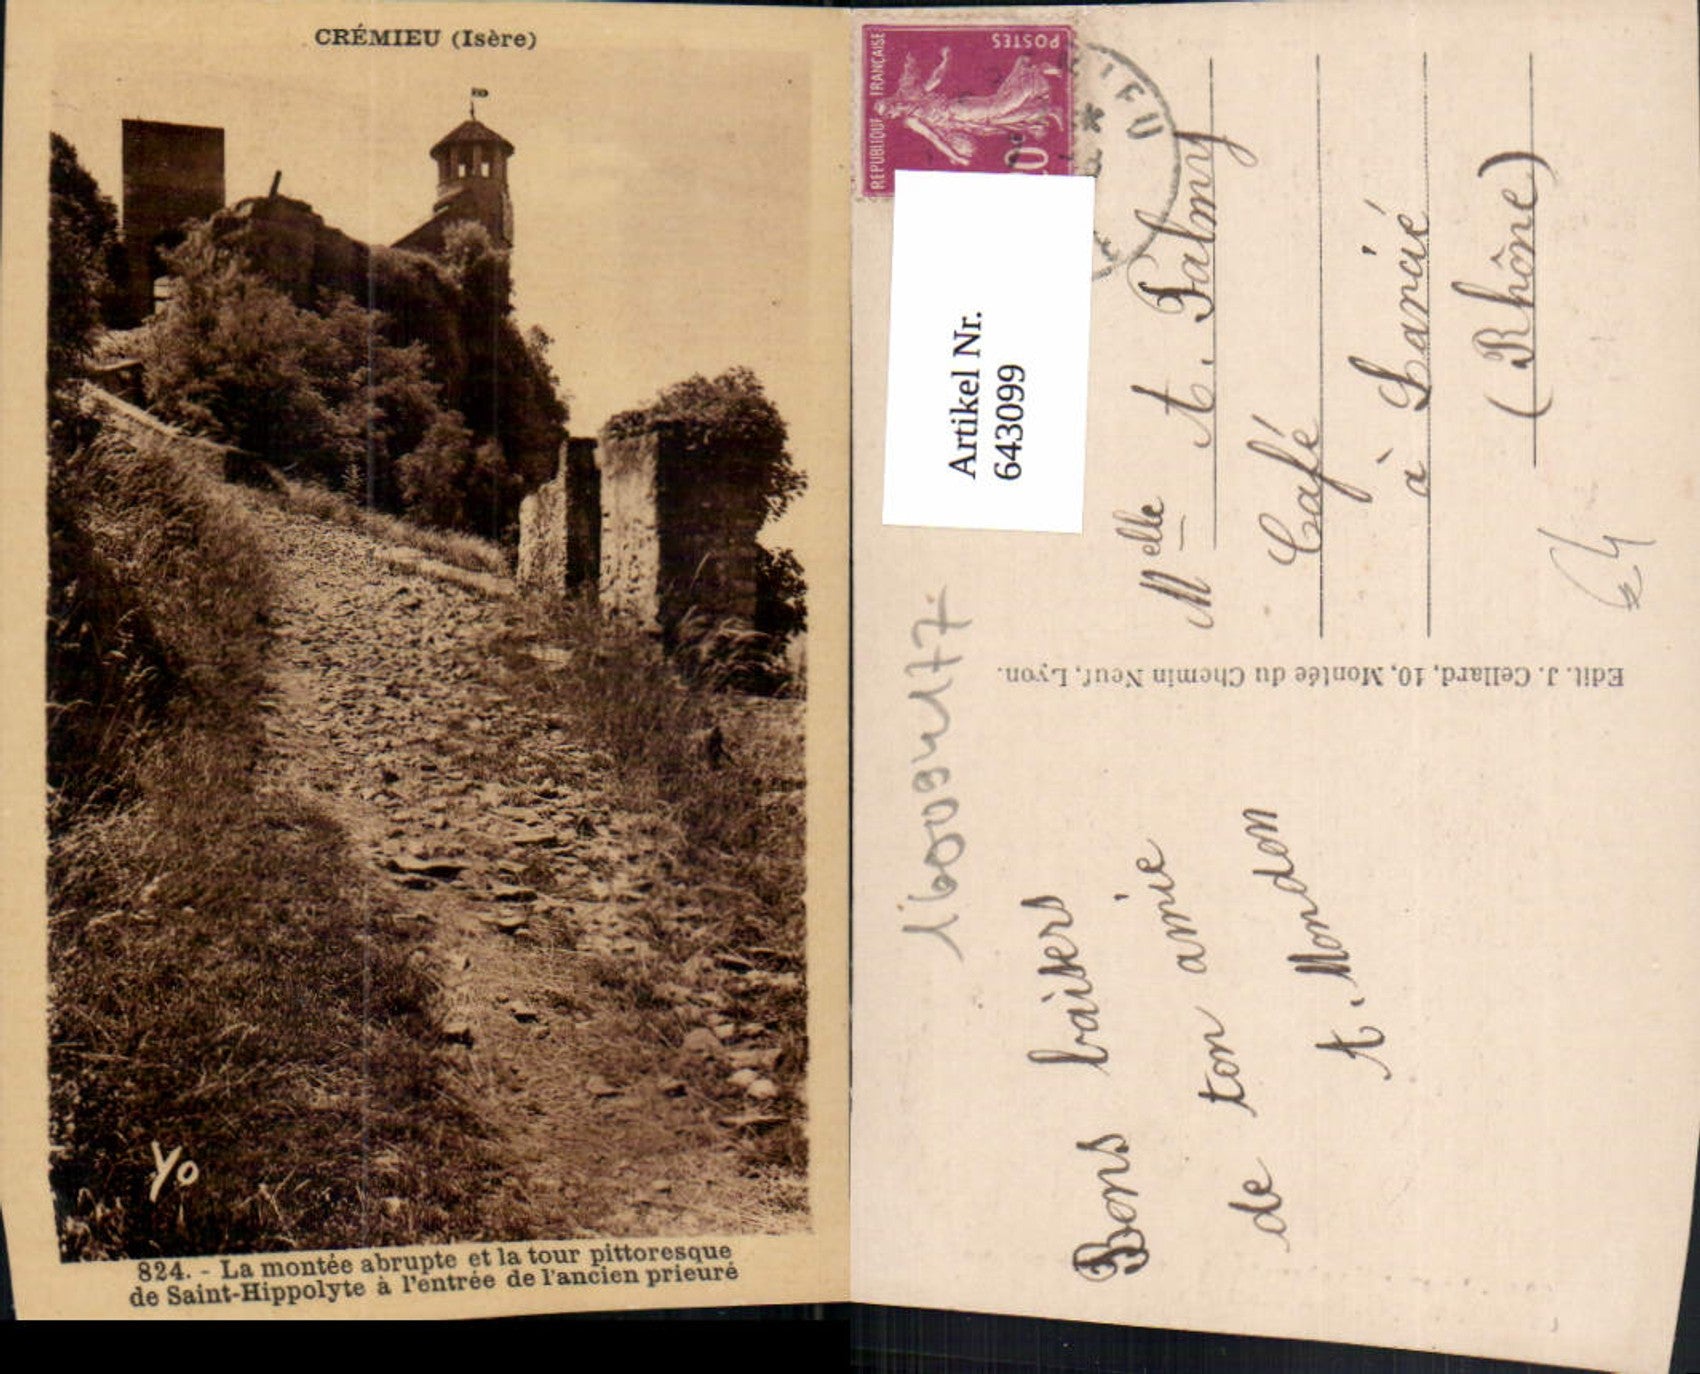 CRÉMIEU (Isère)
Yo
824. - La montée abrupte et la tour pittoresque
de Saint-Hippolyte à l'entrée de l'ancien prieuré
REPUBLIQUE FRANÇAISE
POSTES
Artikel Nr.
643099
Melle A. Palmy
Café
à Lancié
(Rhône)
Edit. J. Cellard, 10, Montée du Chemin Neuf, Lyon.
Bons baisers
de ton amie
A. Mondon